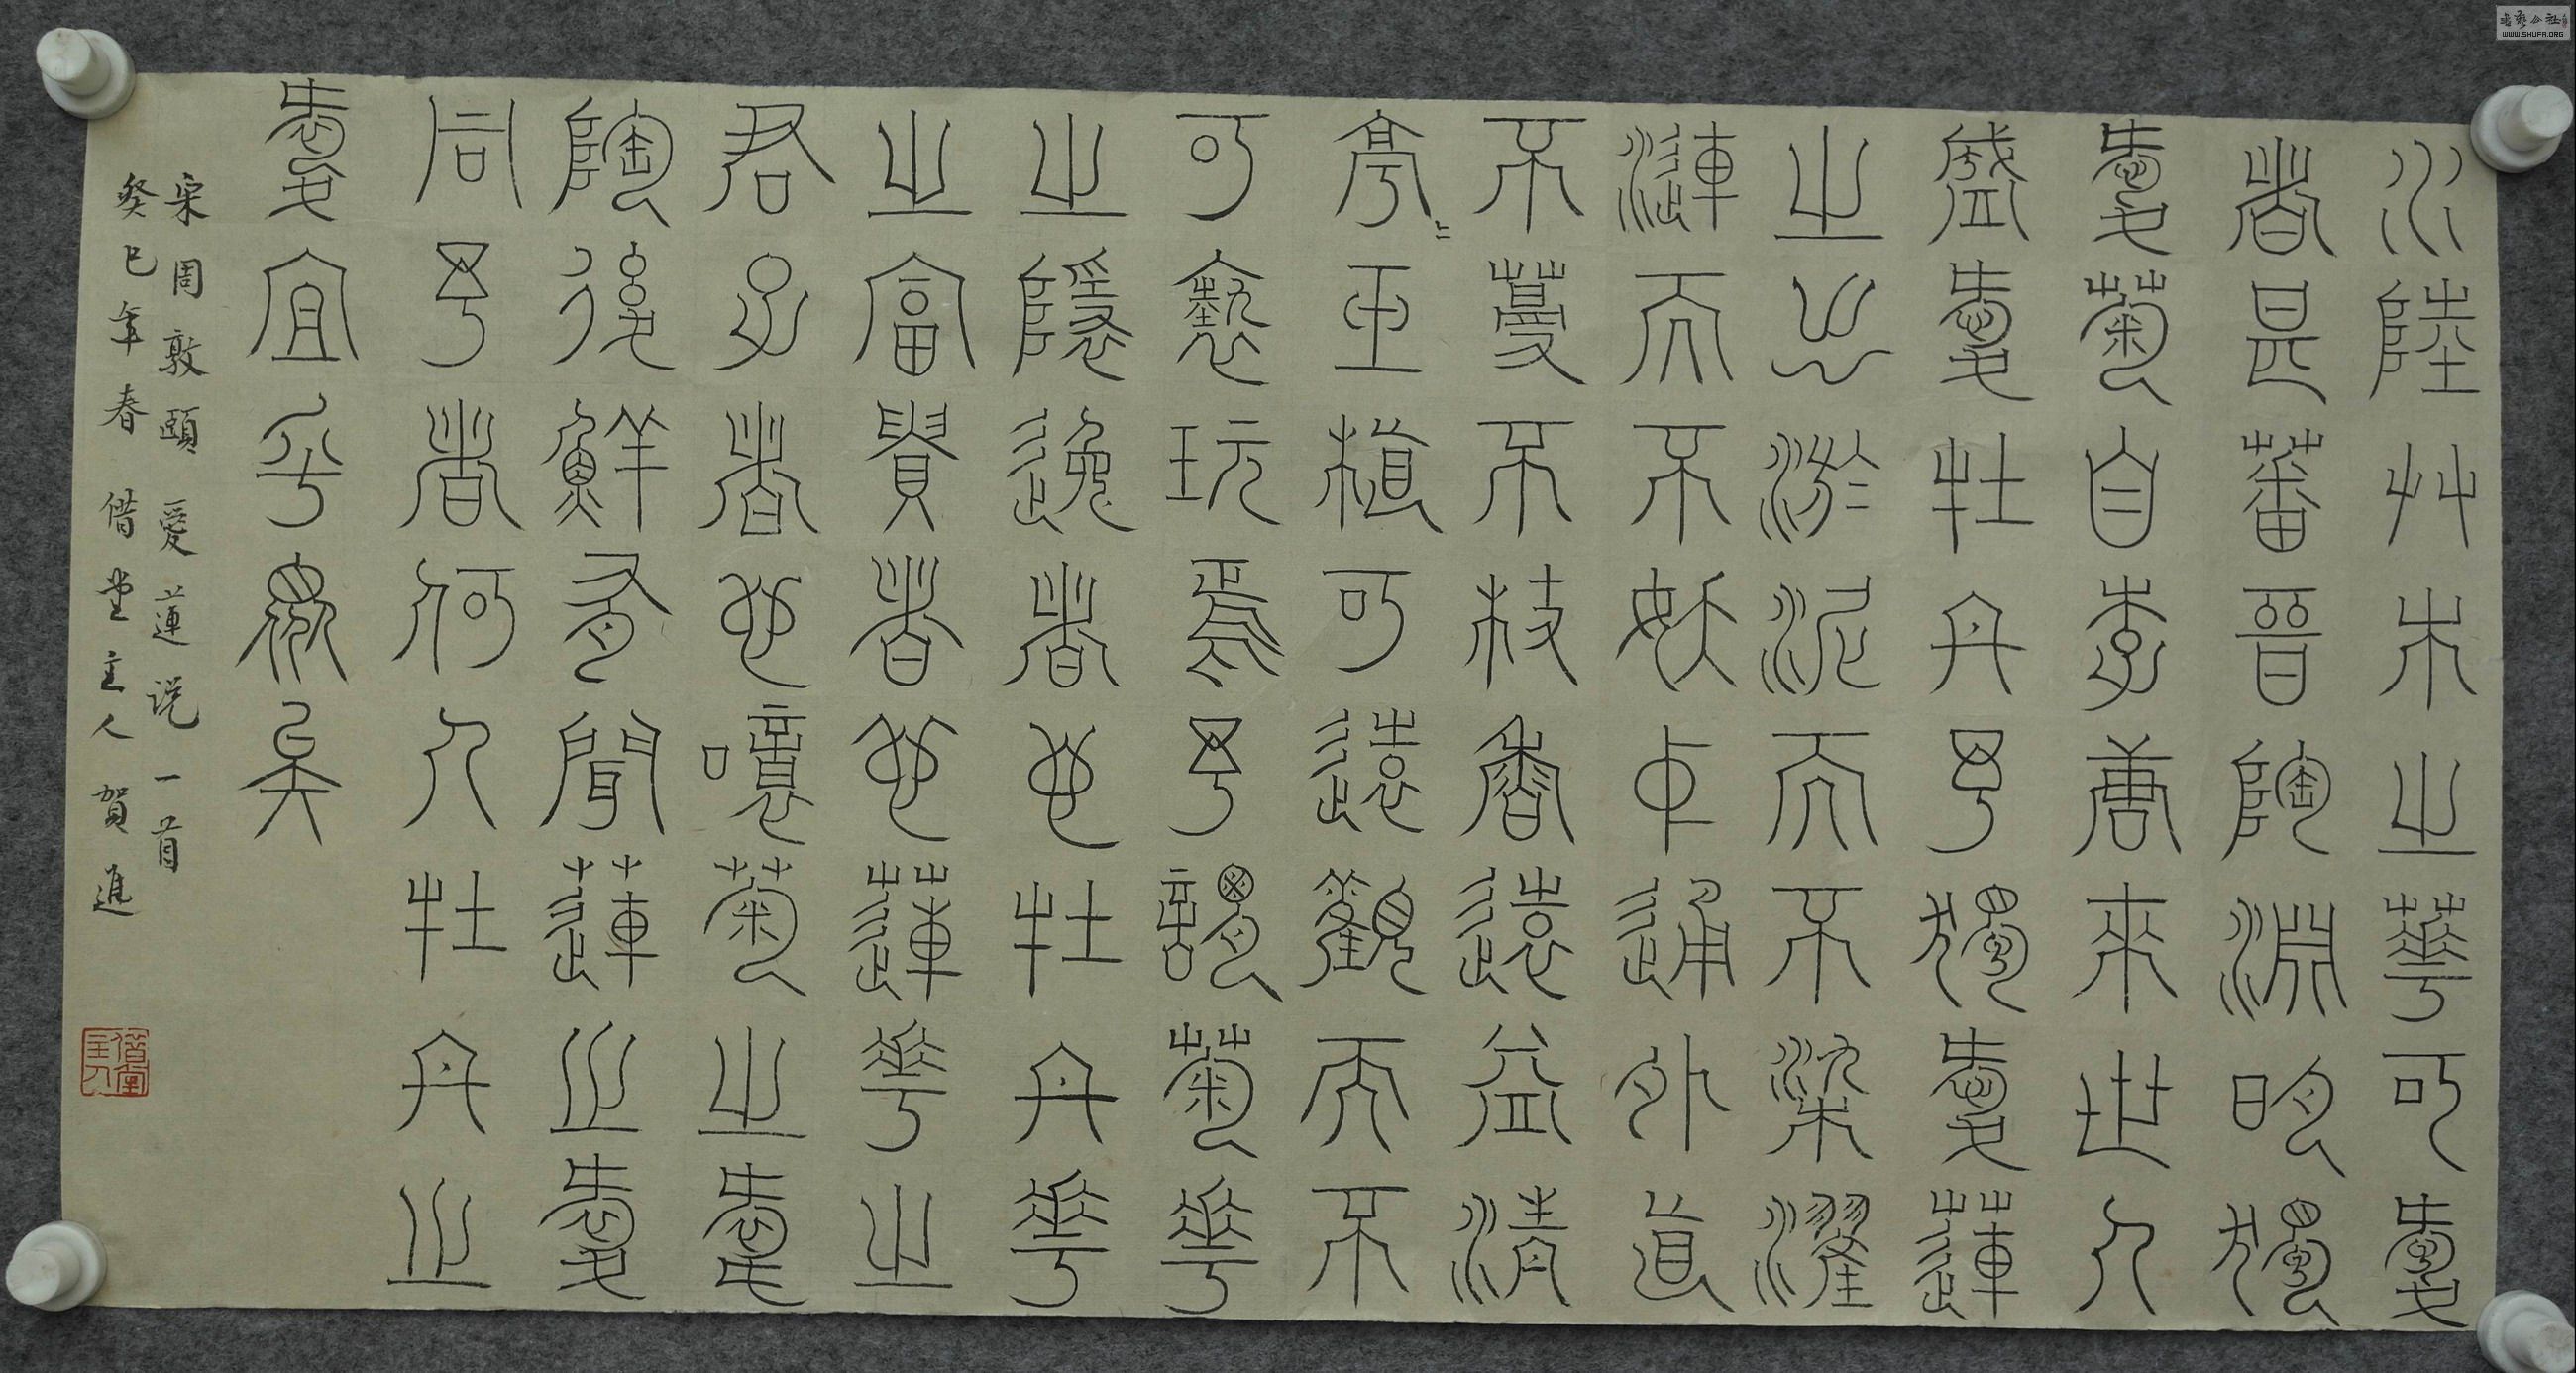 水陸艸木之華可愛
者甚蕃晉陶淵明獨
愛菊自李唐來世人
盛愛牡丹予獨愛蓮
之出淤泥而不染濯
漣而不妖中通外直
不蔓不枝香遠益清
亭〻植可遠觀而不
可褻玩焉予謂菊華
之隱逸者也牡丹華
之富貴者也蓮華之
君子者也噫菊之愛
陶後鮮有聞蓮之愛
同予者何人牡丹之
愛宜乎眾矣
宋周敦頤愛蓮说一首
癸巳年春借堂主人賀進
借堂主人
WWW.SHUFA.ORG